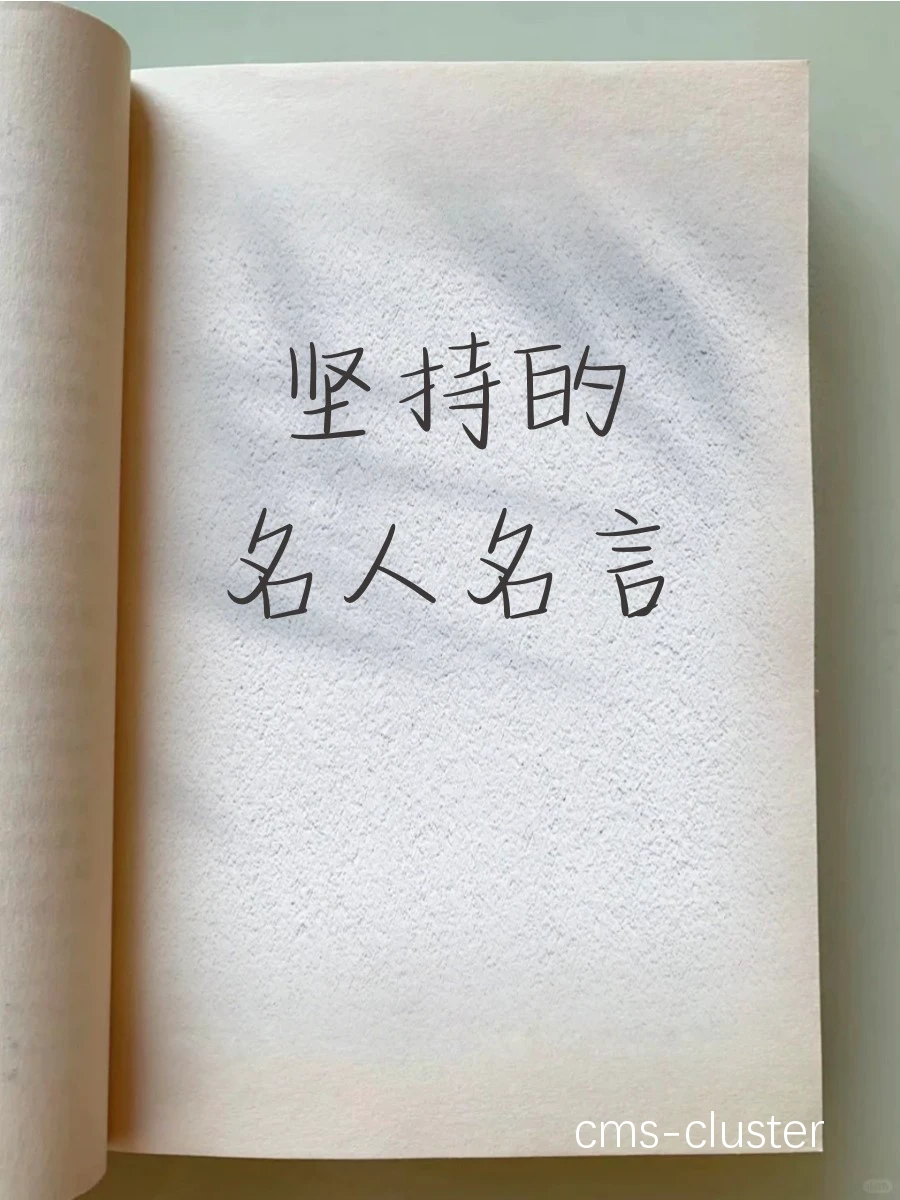 坚持的
名人名言
cms-cluster